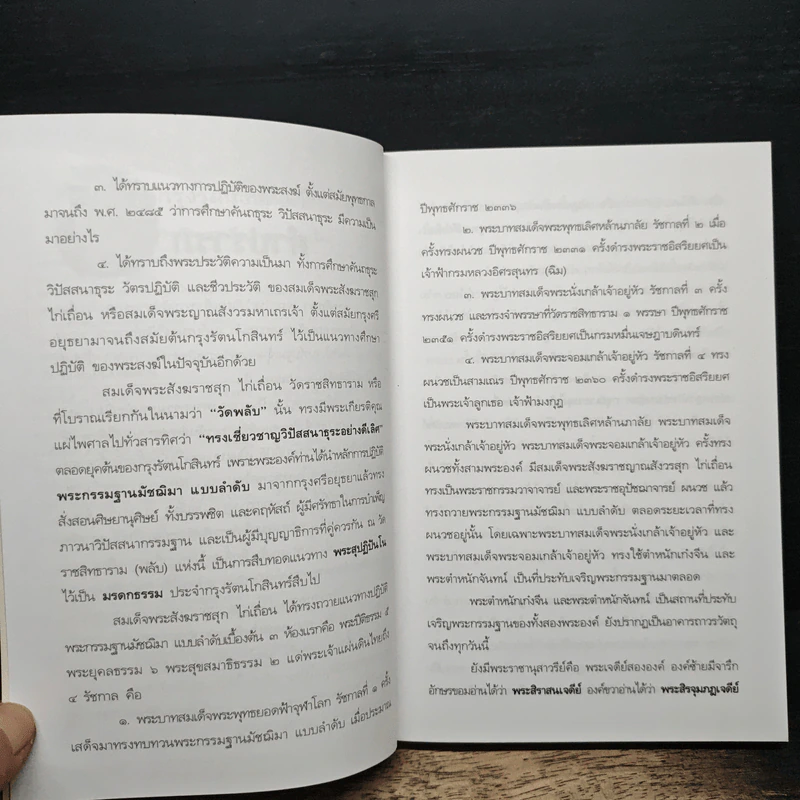 ๓. ได้ทราบแนวทางการปฏิบัติของพระสงฆ์ ตั้งแต่สมัยพุทธกาล
มาจนถึง พ.ศ. ๒๔๘๕ ว่าการศึกษาคันถธุระ วิปัสสนาธุระ มีความเป็น
มาอย่างไร
๔. ได้ทราบถึงพระประวัติความเป็นมา ทั้งการศึกษาคันถธุระ
วิปัสสนาธุระ วัตรปฏิบัติ และชีวประวัติ ของสมเด็จพระสังฆราชสุก
ไก่เถื่อน หรือสมเด็จพระญาณสังวรมหาเถรเจ้า ตั้งแต่สมัยกรุงศรี
อยุธยามาจนถึงสมัยต้นกรุงรัตนโกสินทร์ ไว้เป็นแนวทางศึกษา
ปฏิบัติ ของพระสงฆ์ในปัจจุบันอีกด้วย
สมเด็จพระสังฆราชสุก ไก่เถื่อน วัดราชสิทธาราม หรือ
ที่โบราณเรียกกันในนามว่า “วัดพลับ” นั้น ทรงมีพระเกียรติคุณ
แผ่ไพศาลไปทั่วสารทิศว่า “ทรงเชี่ยวชาญวิปัสสนาธุระอย่างดีเลิศ”
ตลอดยุคต้นของกรุงรัตนโกสินทร์ เพราะพระองค์ท่านได้นำหลักการปฏิบัติ
พระกรรมฐานมัชฌิมา แบบลำดับ มาจากกรุงศรีอยุธยาแล้วทรง
สั่งสอนศิษยานุศิษย์ ทั้งบรรพชิต และคฤหัสถ์ ผู้มีศรัทธาในการบำเพ็ญ
ภาวนาวิปัสสนากรรมฐาน และเป็นผู้มีบุญญาธิการที่คู่ควรกัน ณ วัด
ราชสิทธาราม (พลับ) แห่งนี้ เป็นการสืบทอดแนวทาง พระสุปฏิปันโน
ไว้เป็น มรดกธรรม ประจำกรุงรัตนโกสินทร์สืบไป
สมเด็จพระสังฆราชสุก ไก่เถื่อน ได้ทรงถวายแนวทางปฏิบัติ
พระกรรมฐานมัชฌิมา แบบลำดับเบื้องต้น ๓ ห้องแรกคือ พระปีติธรรม ๕
พระยุคลธรรม ๖ พระสุขสมาธิธรรม ๒ แด่พระเจ้าแผ่นดินไทยถึง
๔ รัชกาล คือ
๑. พระบาทสมเด็จพระพุทธยอดฟ้าจุฬาโลก รัชกาลที่ ๑ ครั้ง
เสด็จมาทรงทบทวนพระกรรมฐานมัชฌิมา แบบลำดับ เมื่อประมาณ
ปีพุทธศักราช ๒๓๓๖
๒. พระบาทสมเด็จพระพุทธเลิศหล้านภาลัย รัชกาลที่ ๒ เมื่อ
ครั้งทรงผนวช ปีพุทธศักราช ๒๓๓๑ ครั้งดำรงพระราชอิสริยยศเป็น
เจ้าฟ้ากรมหลวงอิศรสุนทร (ฉิม)
๓. พระบาทสมเด็จพระนั่งเกล้าเจ้าอยู่หัว รัชกาลที่ ๓ ครั้ง
ทรงผนวช และทรงจำพรรษาที่วัดราชสิทธาราม ๑ พรรษา ปีพุทธศักราช
๒๓๕๑ ครั้งดำรงพระราชอิสริยยศเป็นกรมหมื่นเจษฎาบดินทร์
๔. พระบาทสมเด็จพระจอมเกล้าเจ้าอยู่หัว รัชกาลที่ ๔ ทรง
ผนวชเป็นสามเณร ปีพุทธศักราช ๒๓๖๐ ครั้งดำรงพระราชอิสริยยศ
เป็นพระเจ้าลูกเธอ เจ้าฟ้ามงกุฎ
พระบาทสมเด็จพระพุทธเลิศหล้านภาลัย พระบาทสมเด็จ
พระนั่งเกล้าเจ้าอยู่หัว พระบาทสมเด็จพระจอมเกล้าเจ้าอยู่หัว ครั้งทรง
ผนวชทั้งสามพระองค์ มีสมเด็จพระสังฆราชญาณสังวรสุก ไก่เถื่อน
ทรงเป็นพระกรรมวาจาจารย์ และพระราชอุปัชฌาจารย์ ผนวช แล้ว
ทรงถวายพระกรรมฐานมัชฌิมา แบบลำดับ ตลอดระยะเวลาที่ทรง
ผนวชอยู่นั้น โดยเฉพาะพระบาทสมเด็จพระนั่งเกล้าเจ้าอยู่หัว และ
พระบาทสมเด็จพระจอมเกล้าเจ้าอยู่หัว ทรงใช้ตำหนักเก๋งจีน และ
พระตำหนักจันทน์ เป็นที่ประทับเจริญพระกรรมฐานมาตลอด
พระตำหนักเก๋งจีน และพระตำหนักจันทน์ เป็นสถานที่ประทับ
เจริญพระกรรมฐานของทั้งสองพระองค์ ยังปรากฏเป็นอาคารถาวรวัตถุ
จนถึงทุกวันนี้
ยังมีพระราชานุสาวรีย์คือ พระเจดีย์สององค์ องค์ซ้ายมีจารึก
อักษรขอมอ่านได้ว่า พระสิราสนเจดีย์ องค์ขวาอ่านได้ว่า พระสิรจุมภฏเจดีย์